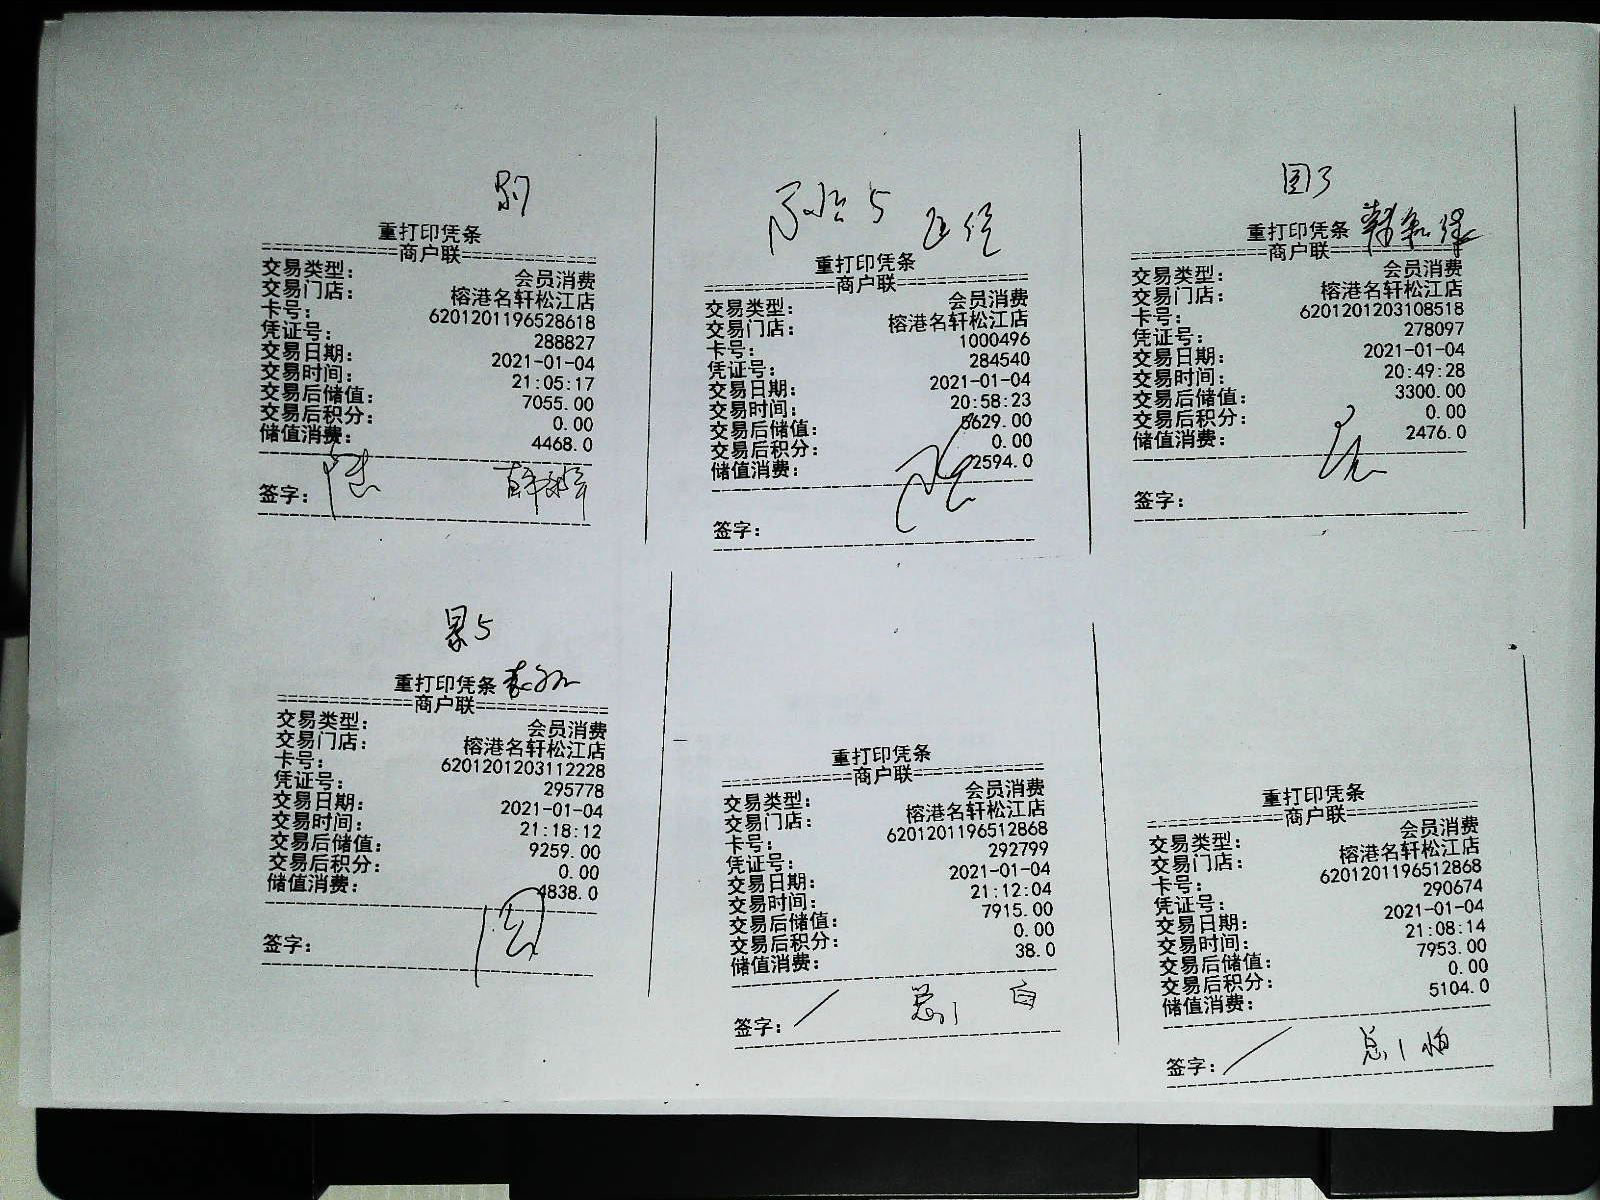 重打印凭条
==============商户联==============
交易类型: 会员消费
交易门店: 榕港名轩松江店
卡号: 6201201196528618
凭证号: 288827
交易日期: 2021-01-04
交易时间: 21:05:17
交易后储值: 7055.00
交易后积分: 0.00
储值消费: 4468.0
签字:
5
重打印凭条
==============商户联==============
交易类型: 会员消费
交易门店: 榕港名轩松江店
卡号: 1000496
凭证号: 284540
交易日期: 2021-01-04
交易时间: 20:58:23
交易后储值: 5629.00
交易后积分: 0.00
储值消费: 2594.0
签字:
图3
重打印凭条
==============商户联==============
交易类型: 会员消费
交易门店: 榕港名轩松江店
卡号: 6201201203108518
凭证号: 278097
交易日期: 2021-01-04
交易时间: 20:49:28
交易后储值: 3300.00
交易后积分: 0.00
储值消费: 2476.0
签字:
5
重打印凭条
==============商户联==============
交易类型: 会员消费
交易门店: 榕港名轩松江店
卡号: 6201201203112228
凭证号: 295778
交易日期: 2021-01-04
交易时间: 21:18:12
交易后储值: 9259.00
交易后积分: 0.00
储值消费: 4838.0
签字:
重打印凭条
==============商户联==============
交易类型: 会员消费
交易门店: 榕港名轩松江店
卡号: 6201201196512868
凭证号: 292799
交易日期: 2021-01-04
交易时间: 21:12:04
交易后储值: 7915.00
交易后积分: 0.00
储值消费: 38.0
签字: 总1
重打印凭条
==============商户联==============
交易类型: 会员消费
交易门店: 榕港名轩松江店
卡号: 6201201196512868
凭证号: 290674
交易日期: 2021-01-04
交易时间: 21:08:14
交易后储值: 7953.00
交易后积分: 0.00
储值消费: 5104.0
签字: 总1